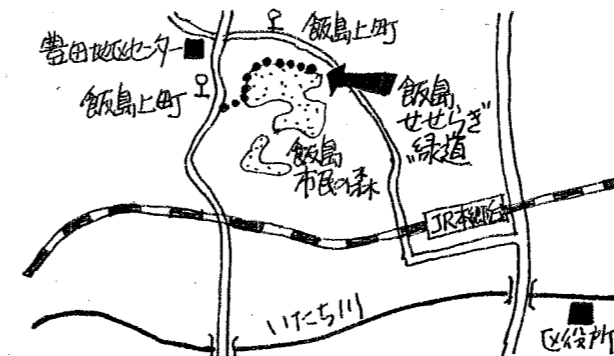 飯島上町
豊田地区センター
飯島上町
飯島
せせらぎ
緑道
飯島
市民の森
JR本郷台
いたち川
区役所